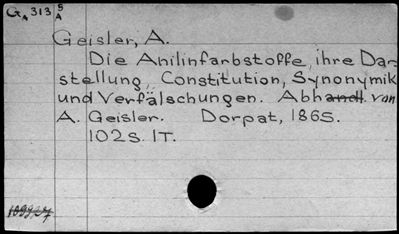 GA 313 5/A
Geisler, A.
Die Anilinfarbstoffe, ihre Dar-
stellung, Constitution, Synonymik
und Verfälschungen. Abhandl. von
A. Geisler. Dorpat, 1865.
102 S. 1 T.